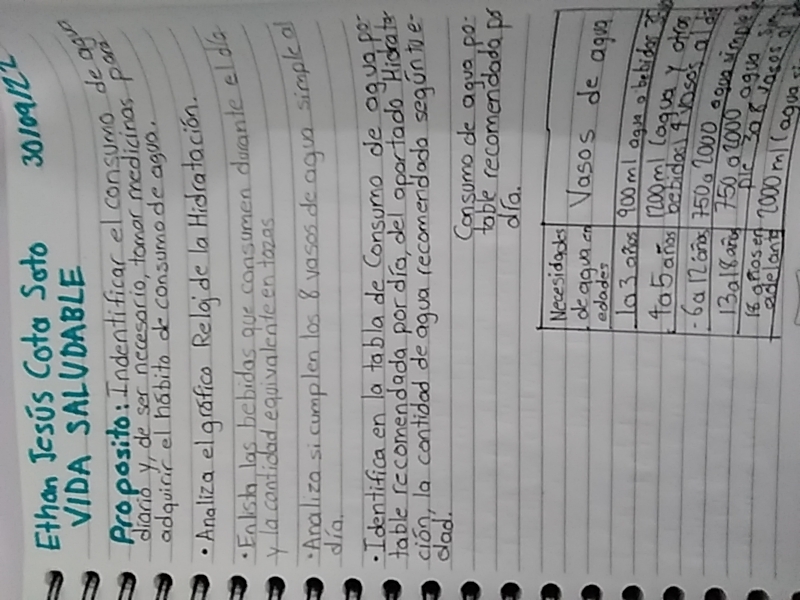 Ethan Jesús Cota Soto 30/09/22
VIDA SALUDABLE
Proposito: Indentificar el consumo de agua
diario y, de ser necesario, tomar medicinas para
adquirir el hábito de consumo de agua.
• Analiza el gráfico Reloj de la Hidratación.
• Enlista las bebidas que consumen durante el día
y la cantidad equivalente en tazas
• Analiza si cumplen los 8 vasos de agua simple al
día.
• Identifica en la tabla de Consumo de agua po-
table recomendada por día, del apartado Hidrata-
ción, la cantidad de agua recomendada según tu e-
dad.
Consumo de agua po-
table recomendada por
día.
Necesidades
de agua en
edades
Vasos de agua
1 a 3 años 900 ml agua o bebidas
4 a 5 años 1200 ml (agua y otras
bebidas) 4 vasos al día
6 a 12 años 750 a 2000 agua simple
13 a 18 años 750 a 2000 agua
18 años en
adelante
ple 3 a 8 vasos al
2000 ml (agua